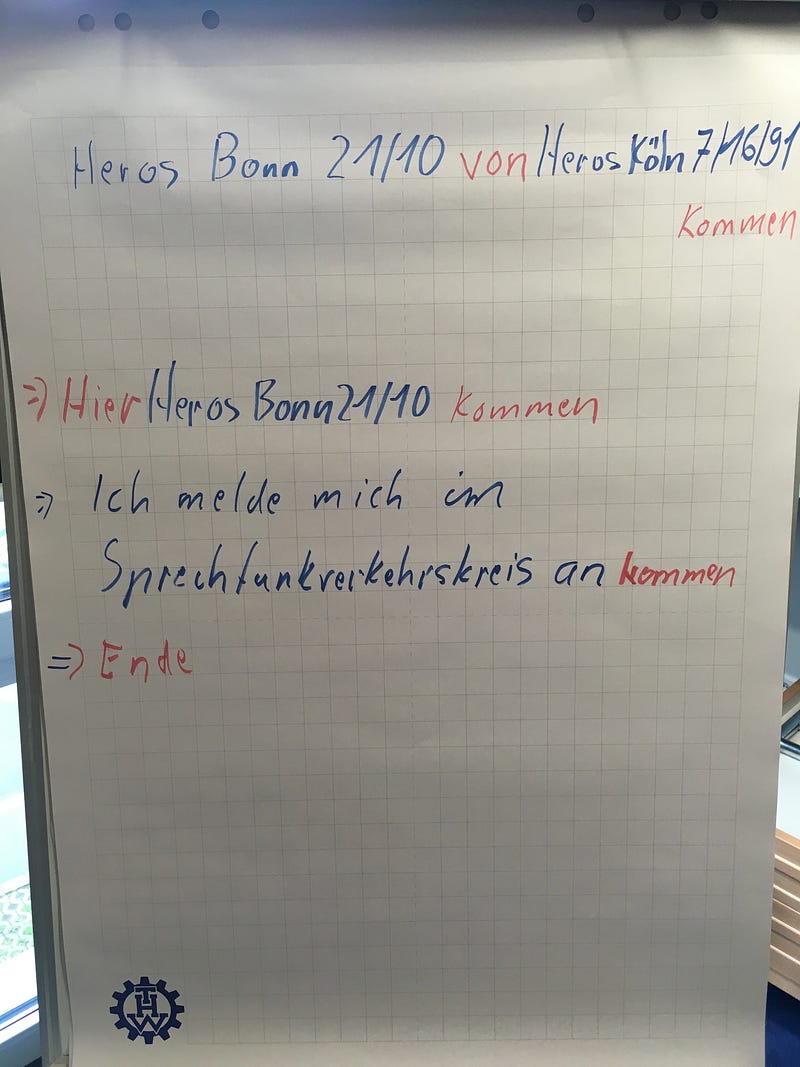 Heros Bonn 21/10 von Heros Köln 7/16/91
Kommen
=> Hier Heros Bonn 21/10 kommen
=> Ich melde mich im
Sprechfunkverkehrskreis an kommen
=> Ende
THW